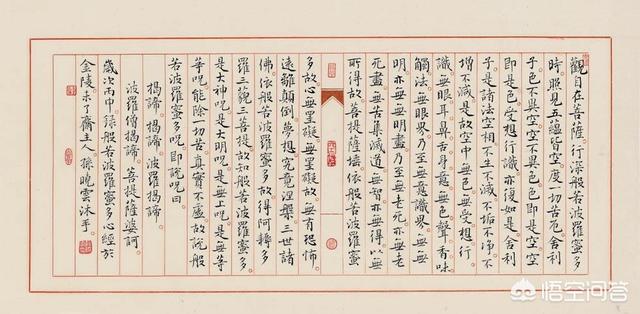 觀自在菩薩行深般若波羅蜜多
時照見五蘊皆空度一切苦厄舍利
子色不異空空不異色色即是空空
即是色受想行識亦復如是舍利
子是諸法空相不生不滅不垢不净不
增不減是故空中無色無受想行
識無眼耳鼻舌身意無色聲香味
觸法無眼界乃至無意識界無無
明亦無無明盡乃至無老死亦無老
死盡無苦集滅道無智亦無得以無
所得故菩提薩埵依般若波羅蜜
多故心無罣礙無罣礙故無有恐怖
遠離顛倒夢想究竟涅槃三世諸
佛依般若波羅蜜多故得阿耨多
羅三藐三菩提故知般若波羅蜜多
是大神咒是大明咒是無上咒是無等
等咒能除一切苦真實不虛故說般
若波羅蜜多咒即說咒曰
揭諦揭諦波羅揭諦
波羅僧揭諦菩提薩婆訶
歲次丙申錄般若波羅蜜多心經於
金陵未了齋主人孫曉雲沐手
悟空问答